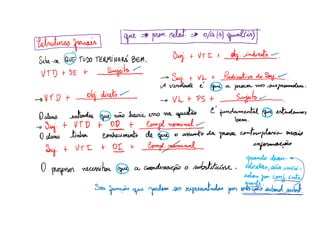 Estruturas frasais
que → pron. relat → o/a(s) qual(is)
Sabe-se QUE TUDO TERMINARÁ BEM.
VTD + SE + Sujeito
→ VTD + obj direto
Suj + VTI + obj. indireto.
→ Suj + VL + Predicativo do Suj.
A verdade é que a prova nos surpreendeu.
→ VL + PS + Sujeito.
É fundamental que estudemos bem.
O aluno entendeu que não havia erro na questão
→ Suj + VTD + OD + Compl nominal
O aluno tinha conhecimento de que o assunto da prova contemplaria mais informações
Suj + VTI + OI + Compl nominal
O professor necessitou que a coordenação o substituísse.
quando
São funções que podem ser representadas por oração subord subst